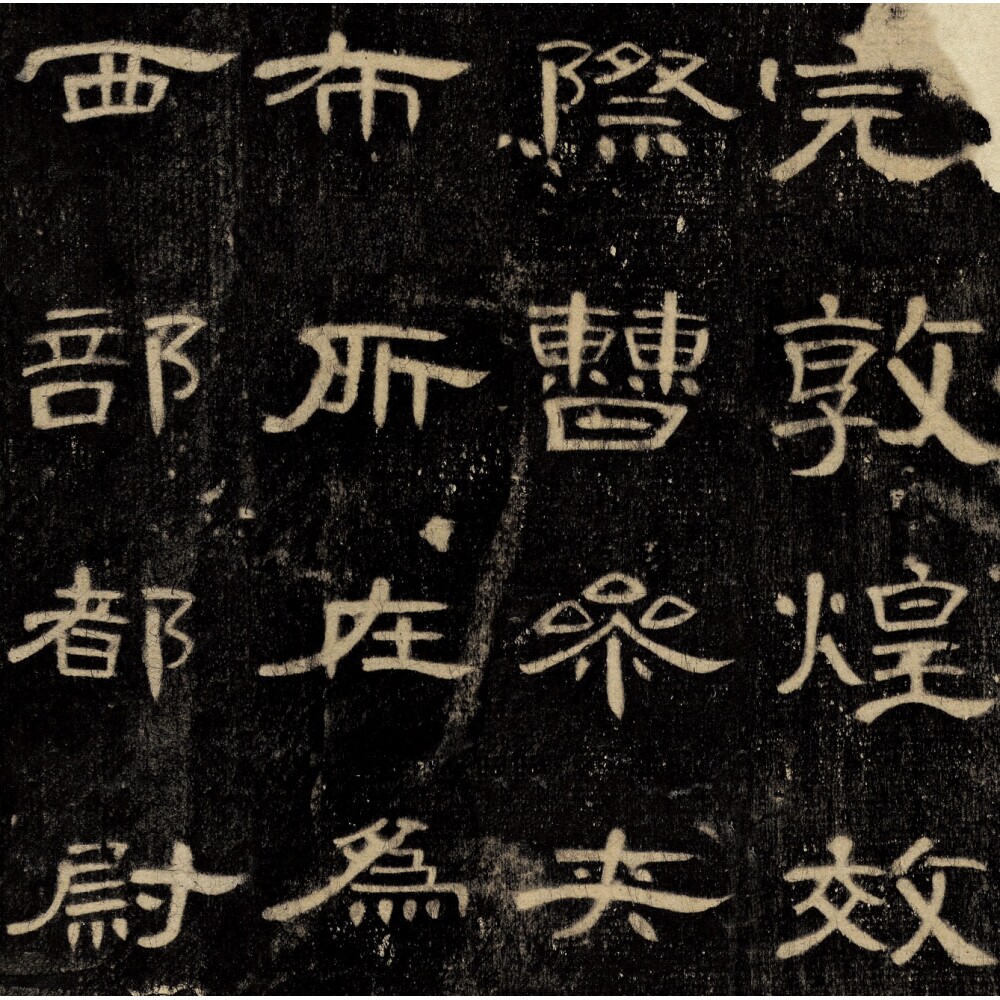 完敦煌效
際曹參夾
布所在爲
西部都尉